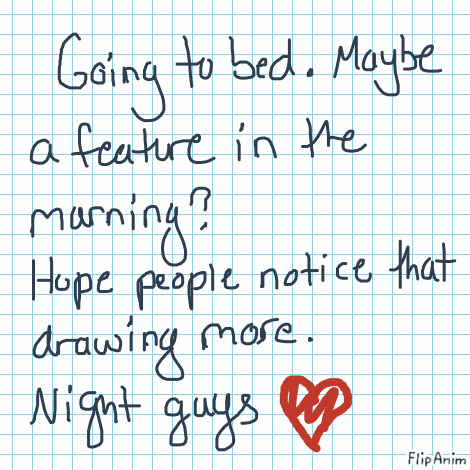 Going to bed. Maybe
a feature in the
morning?
Hope people notice that
drawing more.
Night guys
FlipAnim